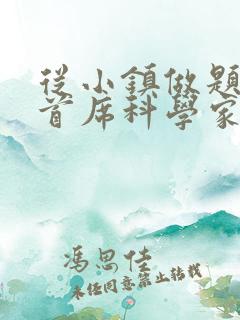 從小鎮做題
首席科學家
馮思佳
未經同意禁止轉載